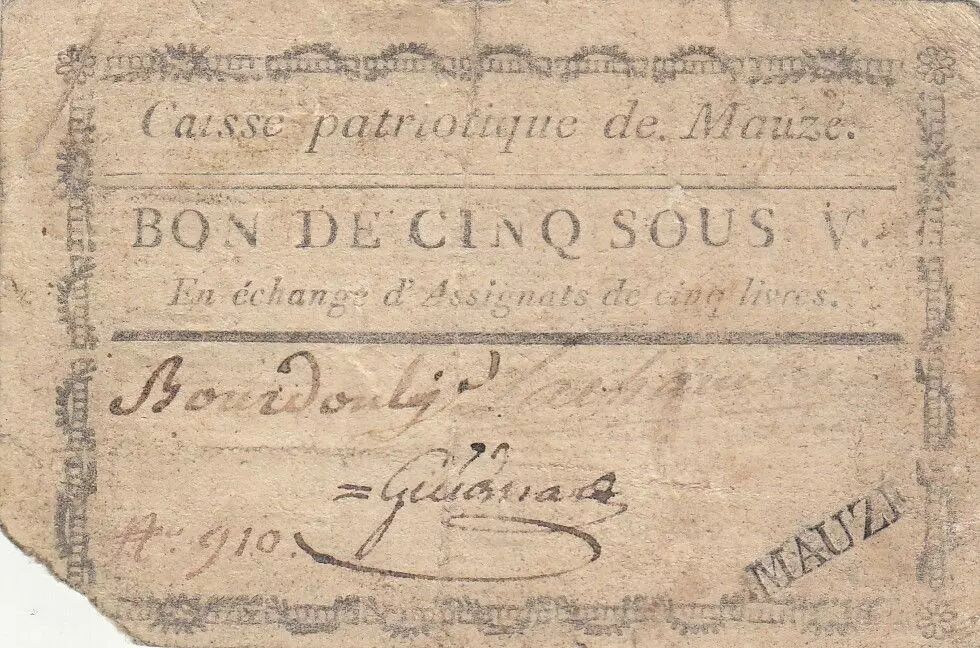 Caisse patriotique de Mauzé.
BON DE CINQ SOUS. V.
En échange d'Assignats de cinq livres.
N.º 910.
MAUZÉ